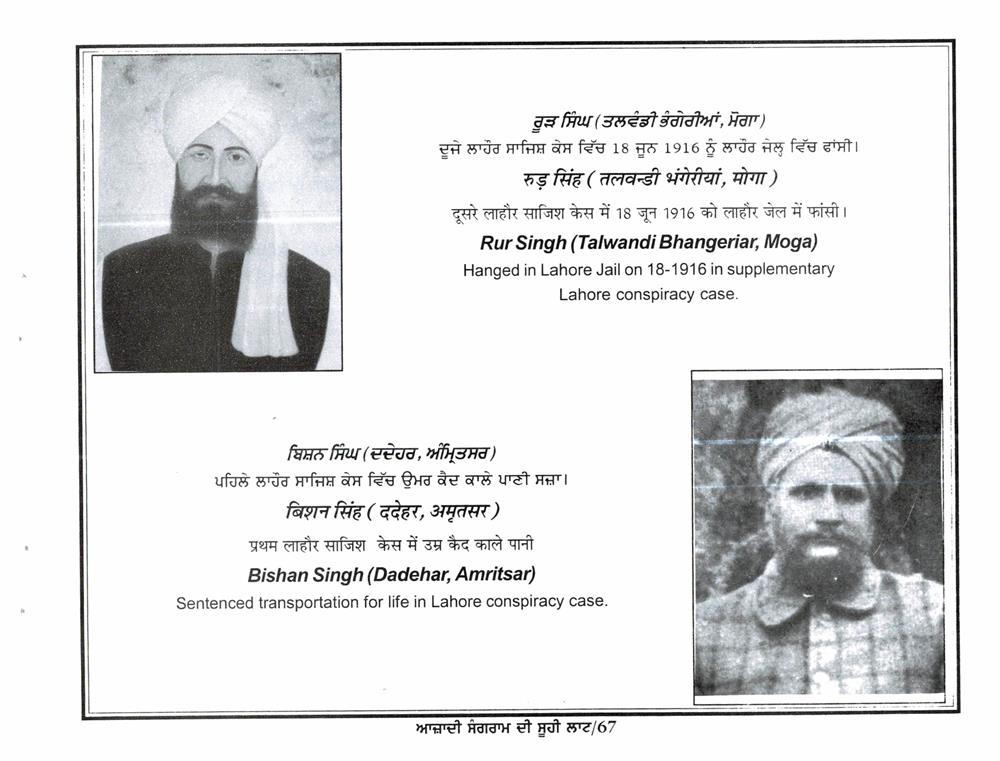 ਰੂੜ ਸਿੰਘ (ਤਲਵੰਡੀ ਭੰਗੇਰੀਆਂ, ਮੋਗਾ)
ਦੂਜੇ ਲਾਹੌਰ ਸਾਜਿਸ਼ ਕੇਸ ਵਿੱਚ 18 ਜੂਨ 1916 ਨੂੰ ਲਾਹੌਰ ਜੇਲ੍ਹ ਵਿੱਚ ਫਾਂਸੀ।
रुड़ सिंह ( तलवन्डी भंगेरीयां, मोगा )
दूसरे लाहौर साजिश केस में 18 जून 1916 को लाहौर जेल में फांसी।
Rur Singh (Talwandi Bhangeriar, Moga)
Hanged in Lahore Jail on 18-1916 in supplementary
Lahore conspiracy case.
ਬਿਸ਼ਨ ਸਿੰਘ (ਦਦੇਹਰ, ਅੰਮ੍ਰਿਤਸਰ)
ਪਹਿਲੇ ਲਾਹੌਰ ਸਾਜਿਸ਼ ਕੇਸ ਵਿੱਚ ਉਮਰ ਕੈਦ ਕਾਲੇ ਪਾਣੀ ਸਜ਼ਾ।
बिशन सिंह ( ददेहर, अमृतसर )
प्रथम लाहौर साजिश केस में उम्र कैद काले पानी
Bishan Singh (Dadehar, Amritsar)
Sentenced transportation for life in Lahore conspiracy case.
ਆਜ਼ਾਦੀ ਸੰਗਰਾਮ ਦੀ ਸੂਹੀ ਲਾਟ/67